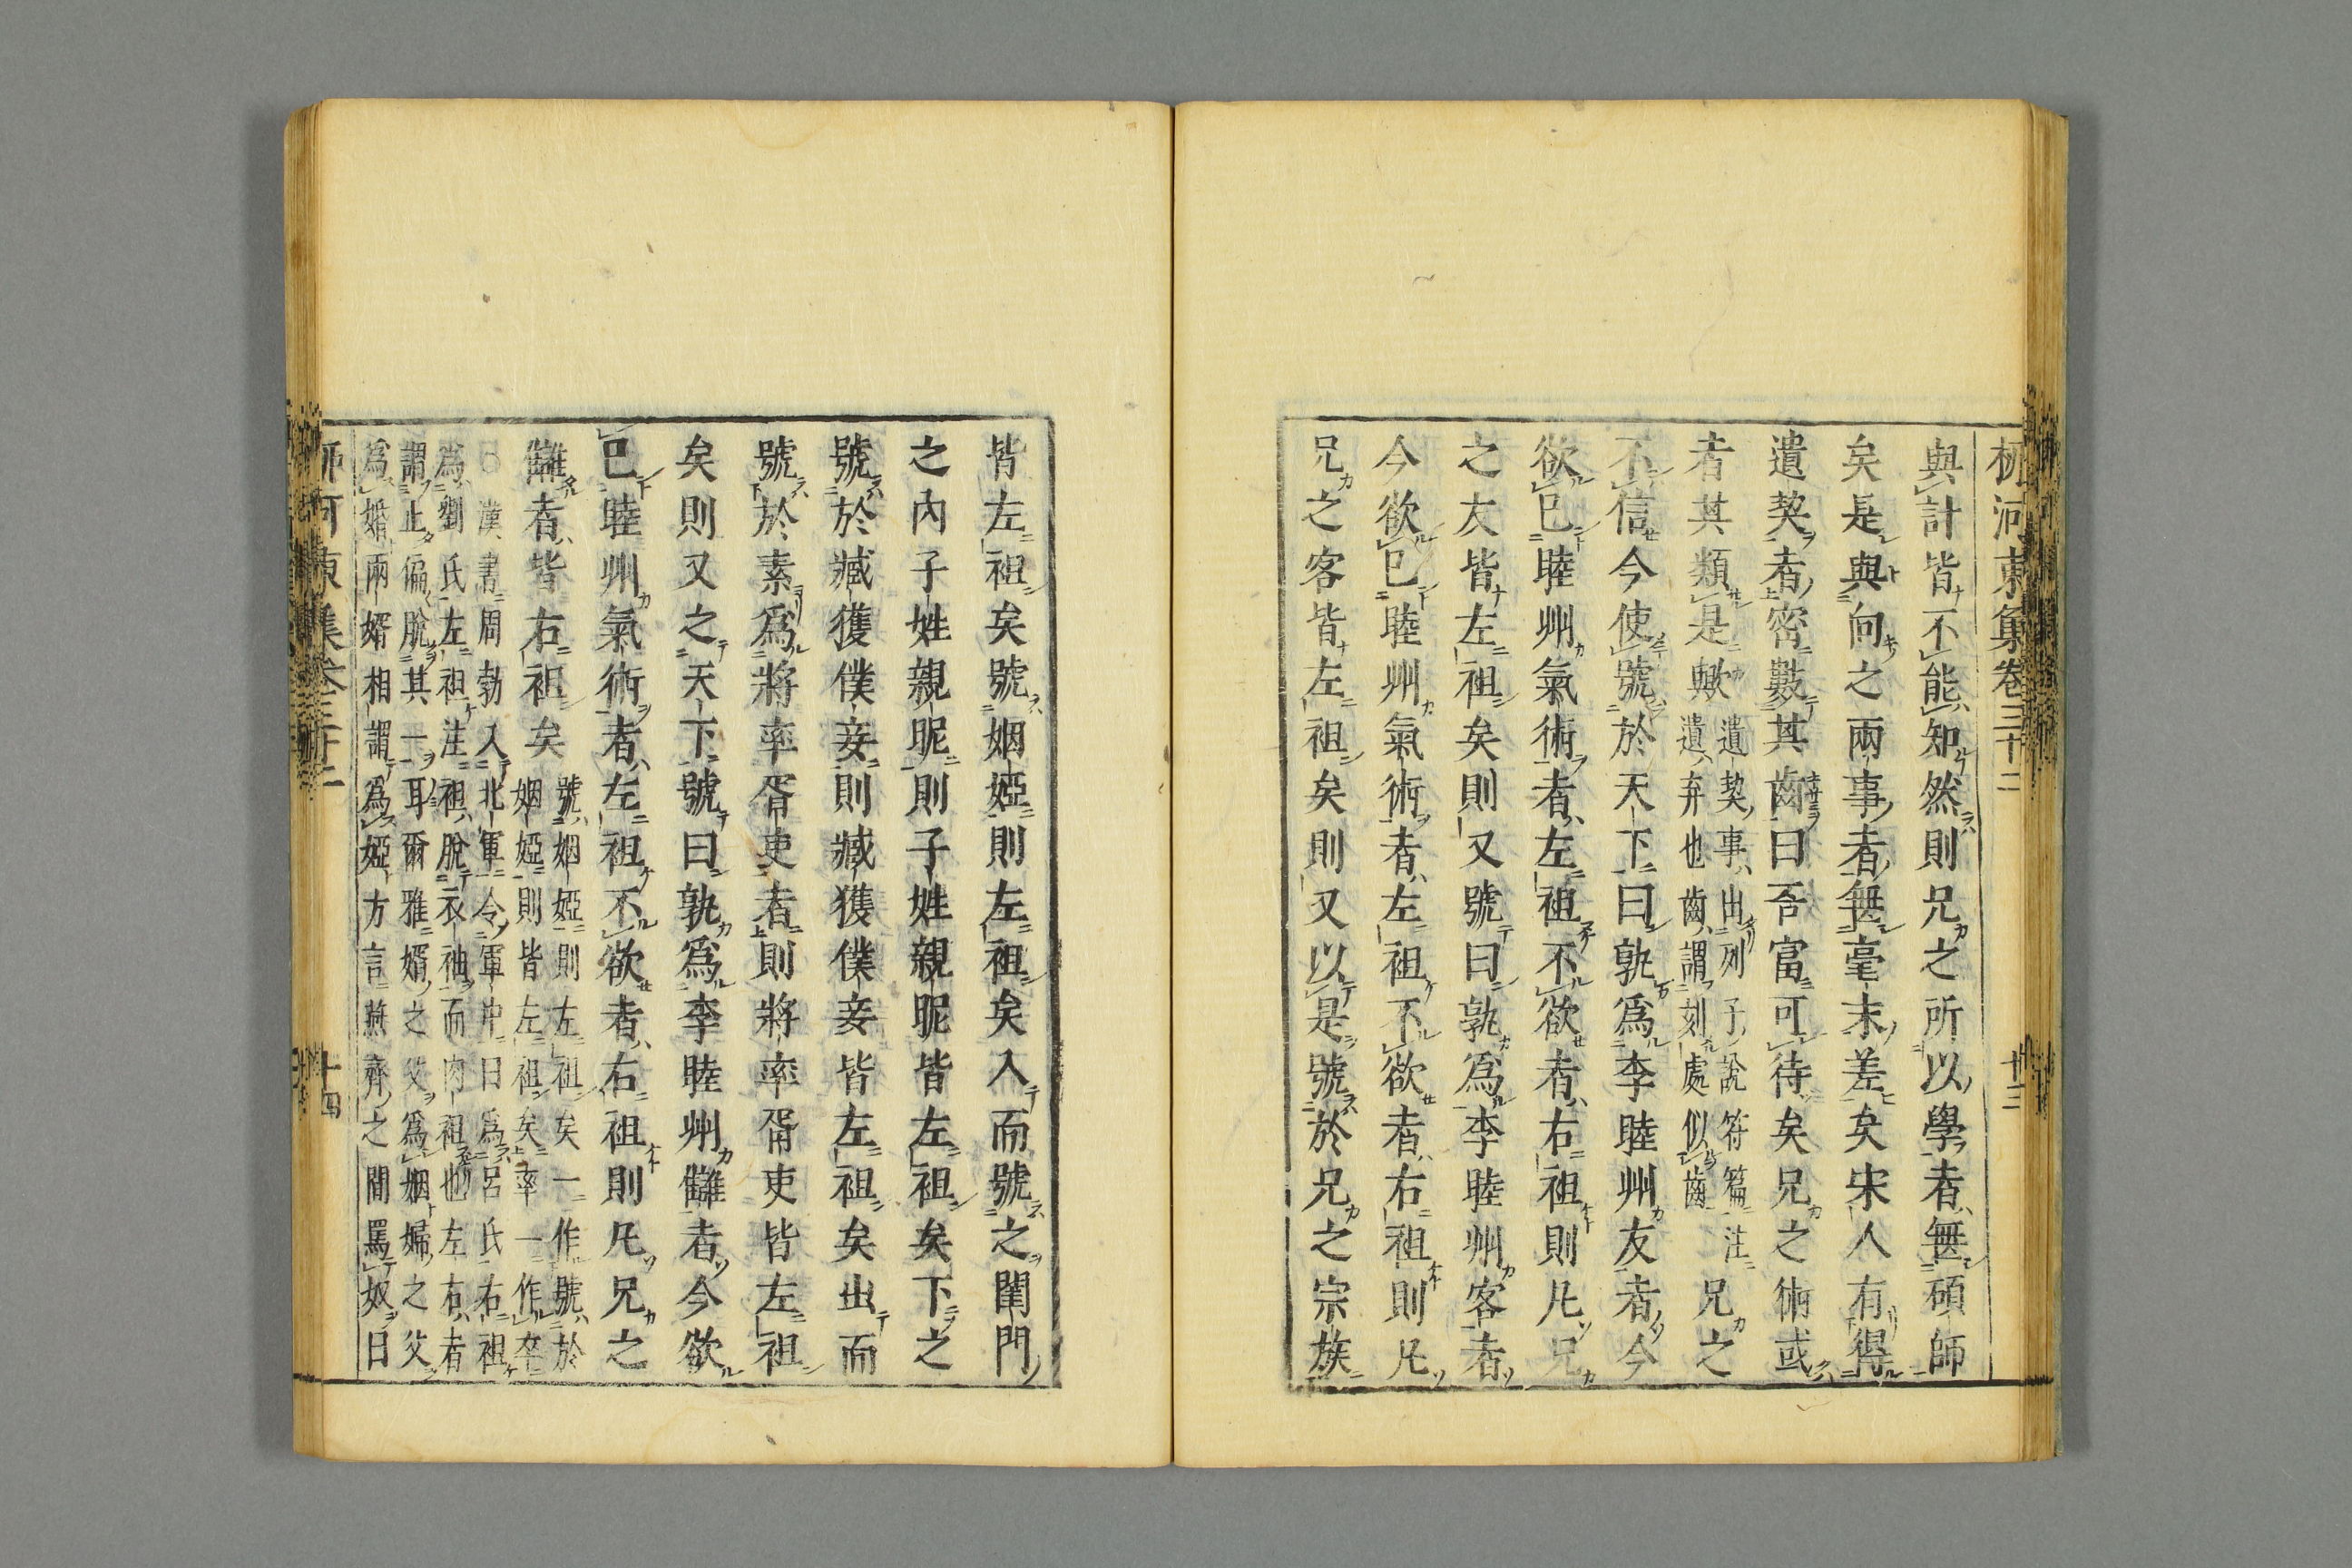 柳河東集卷三十二 十三
與計皆不能知然則兄之所以學者無碩師
矣是與向之兩事者無毫末差矣宋人有得
遺契者密數其齒曰吾富可待矣兄之術或
者其類是歟
遺契事出列子說符篇注
遺弃也齒謂刻處似齒
兄之
不信今使號於天下曰孰爲李睦州友者今
欲已睦州氣術者左袒不欲者右袒則凡兄
之友皆左袒矣則又號曰孰爲李睦州客者
今欲已睦州氣術者左袒不欲者右袒則凡
兄之客皆左袒矣則又以是號於兄之宗族
皆左袒矣號姻婭則左袒矣入而號之閨門
之內子姓親昵則子姓親昵皆左袒矣下之
號於臧獲僕妾則臧獲僕妾皆左袒矣出而
號於素爲將率胥吏者則將率胥吏皆左袒
矣則又之天下號曰孰爲李睦州讎者今欲
已睦州氣術者左袒不欲者右袒則凡兄之
讎者皆右袒矣
號姻婭則左袒矣一作號於
姻婭則皆左袒矣率一作卒
漢書周勃入北軍令軍中曰爲呂氏右袒
爲劉氏左袒注袒脫衣袖而肉袒也左右者
謂止偏脫其一耳爾雅婿之父爲姻婦之父
爲婚兩婿相謂爲婭方言燕齊之間罵奴曰
柳河東集卷三十二 十四